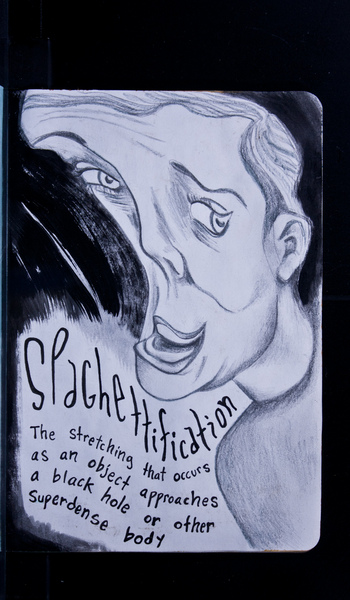 Spaghettification
The stretching that occurs
as an object approaches
a black hole or other
Superdense body